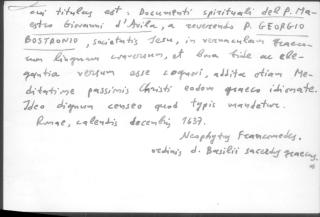 cui titulus est: Documenti spirituali del P. Ma-
estro Giovanni d'Avila, a reverendo P. GEORGIO
BOSTRONIO, societatis Jesu, in vernaculam Graeco-
rum linguam conversum, et bona fide ac ele-
gantia versum esse comperi, addita etiam Me-
ditatione passionis Christi eodem graeco idiomate.
Ideo dignum censeo quod typis mandetur.
Romae, calendis decembris 1637.
Neophytus Francomedes.
ordinis d. Basilii sacerdos graecus.